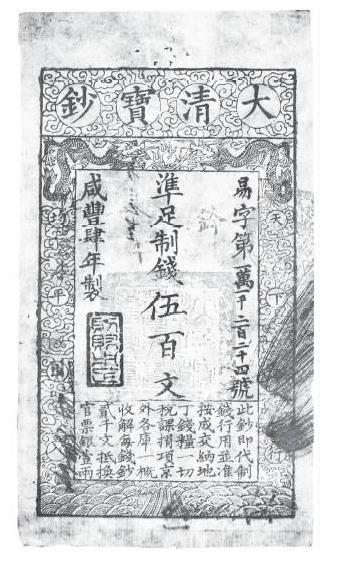 大清寶鈔
易字第一萬千二百二十四號
準足制錢伍百文
咸豐肆年製
天下
行
平
此鈔即代制
錢行用並准
按成交納地
丁錢糧一切
稅課捐項京
外各庫一概
收解每錢鈔
貳千文抵換
官票銀壹兩